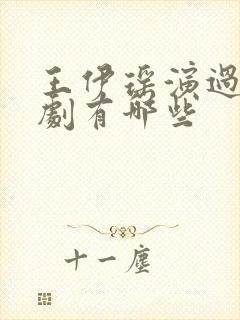 王伊瑶演過
劇有哪些
十一塵